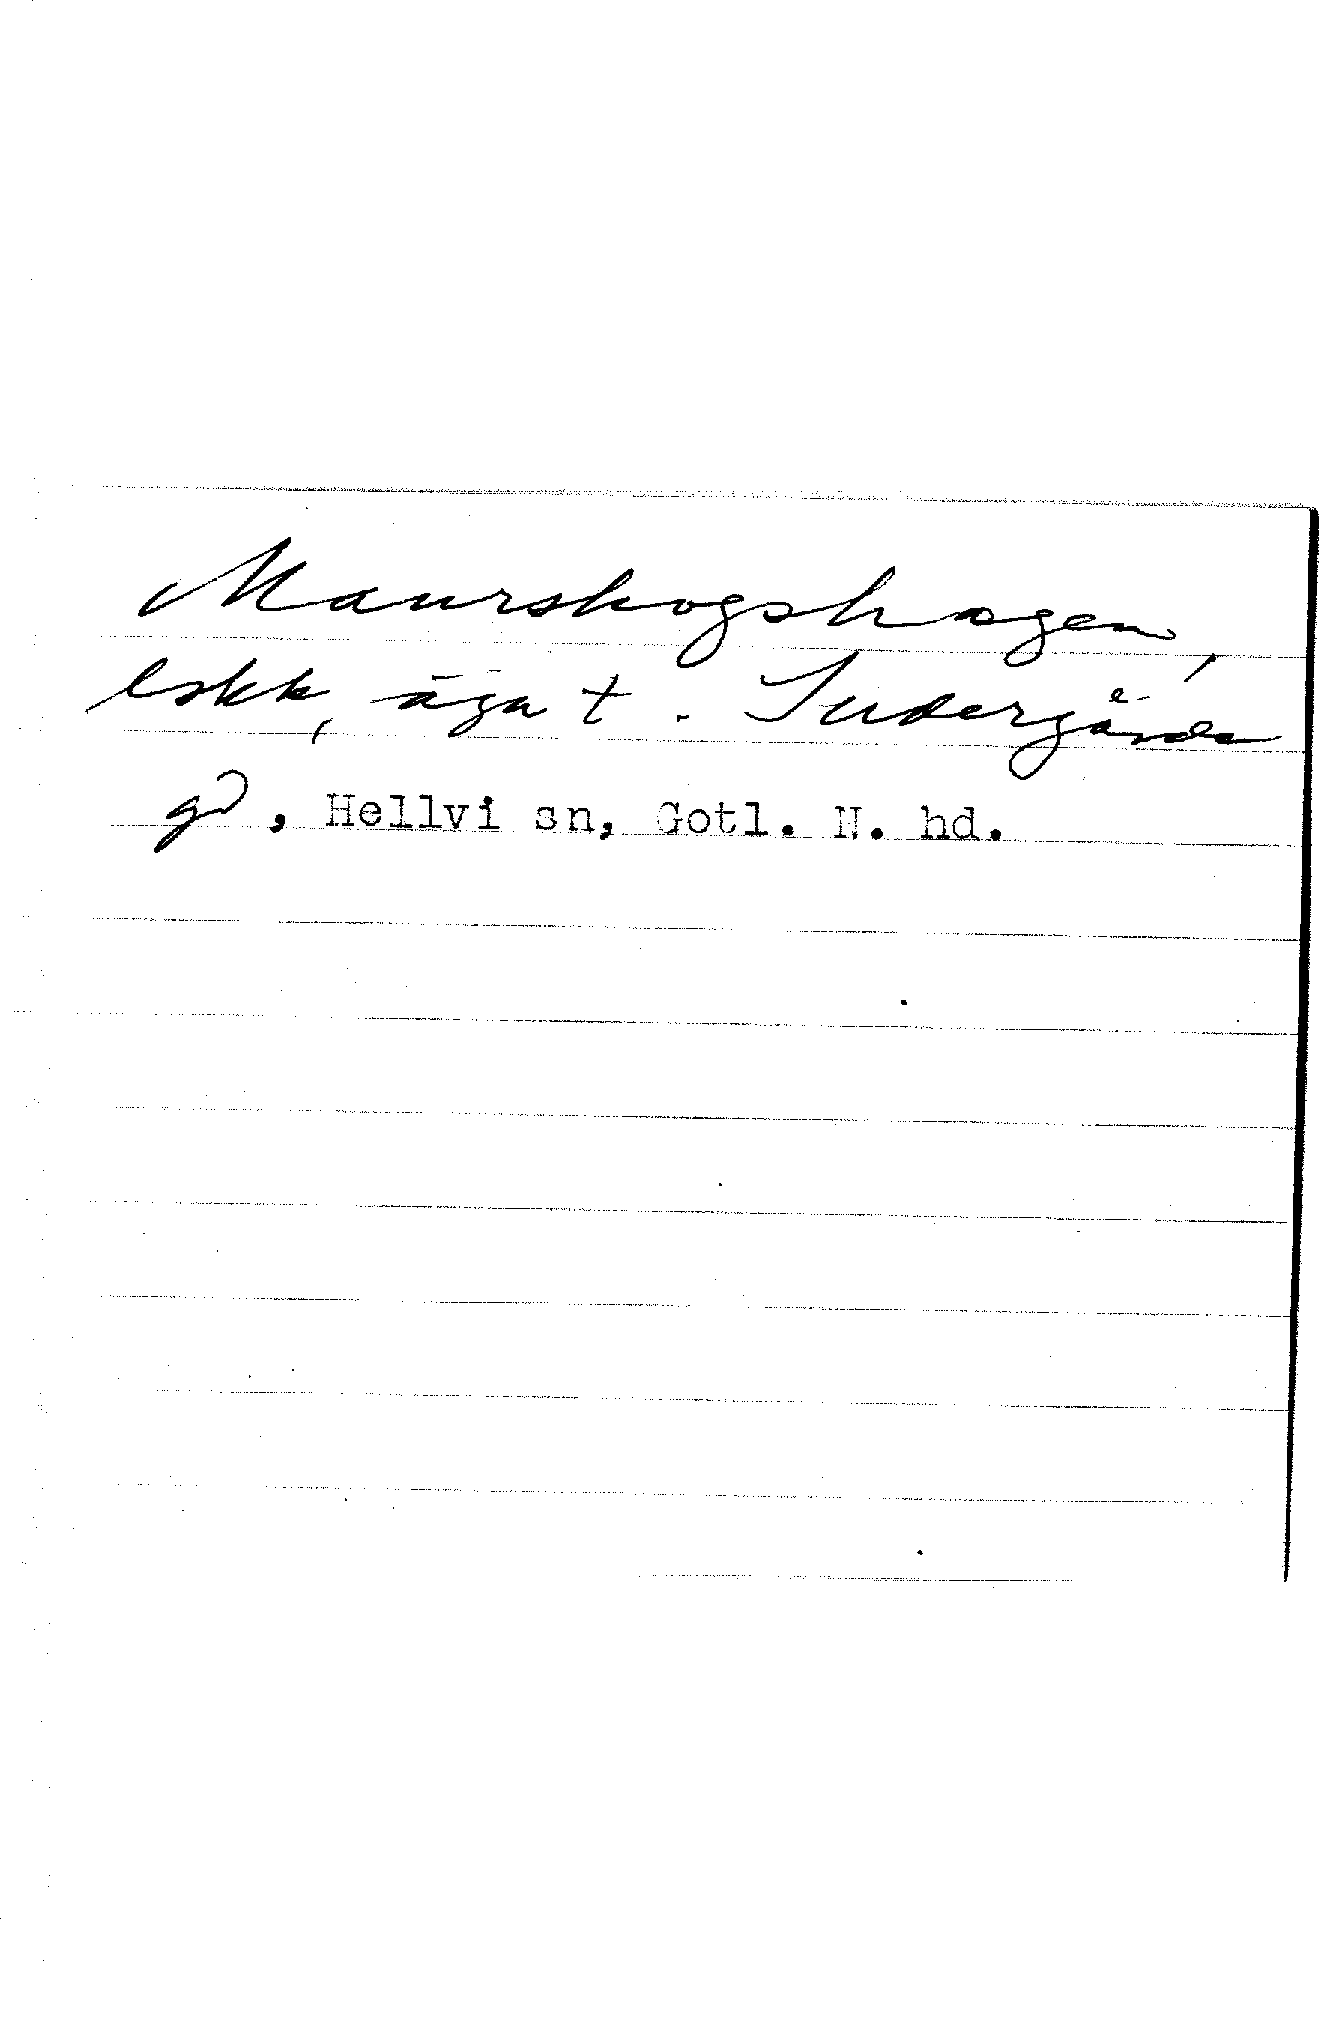 Maurskogshagen,
lokk, äga t. Sudergårda
gd, Hellvi sn, Gotl. N. hd.